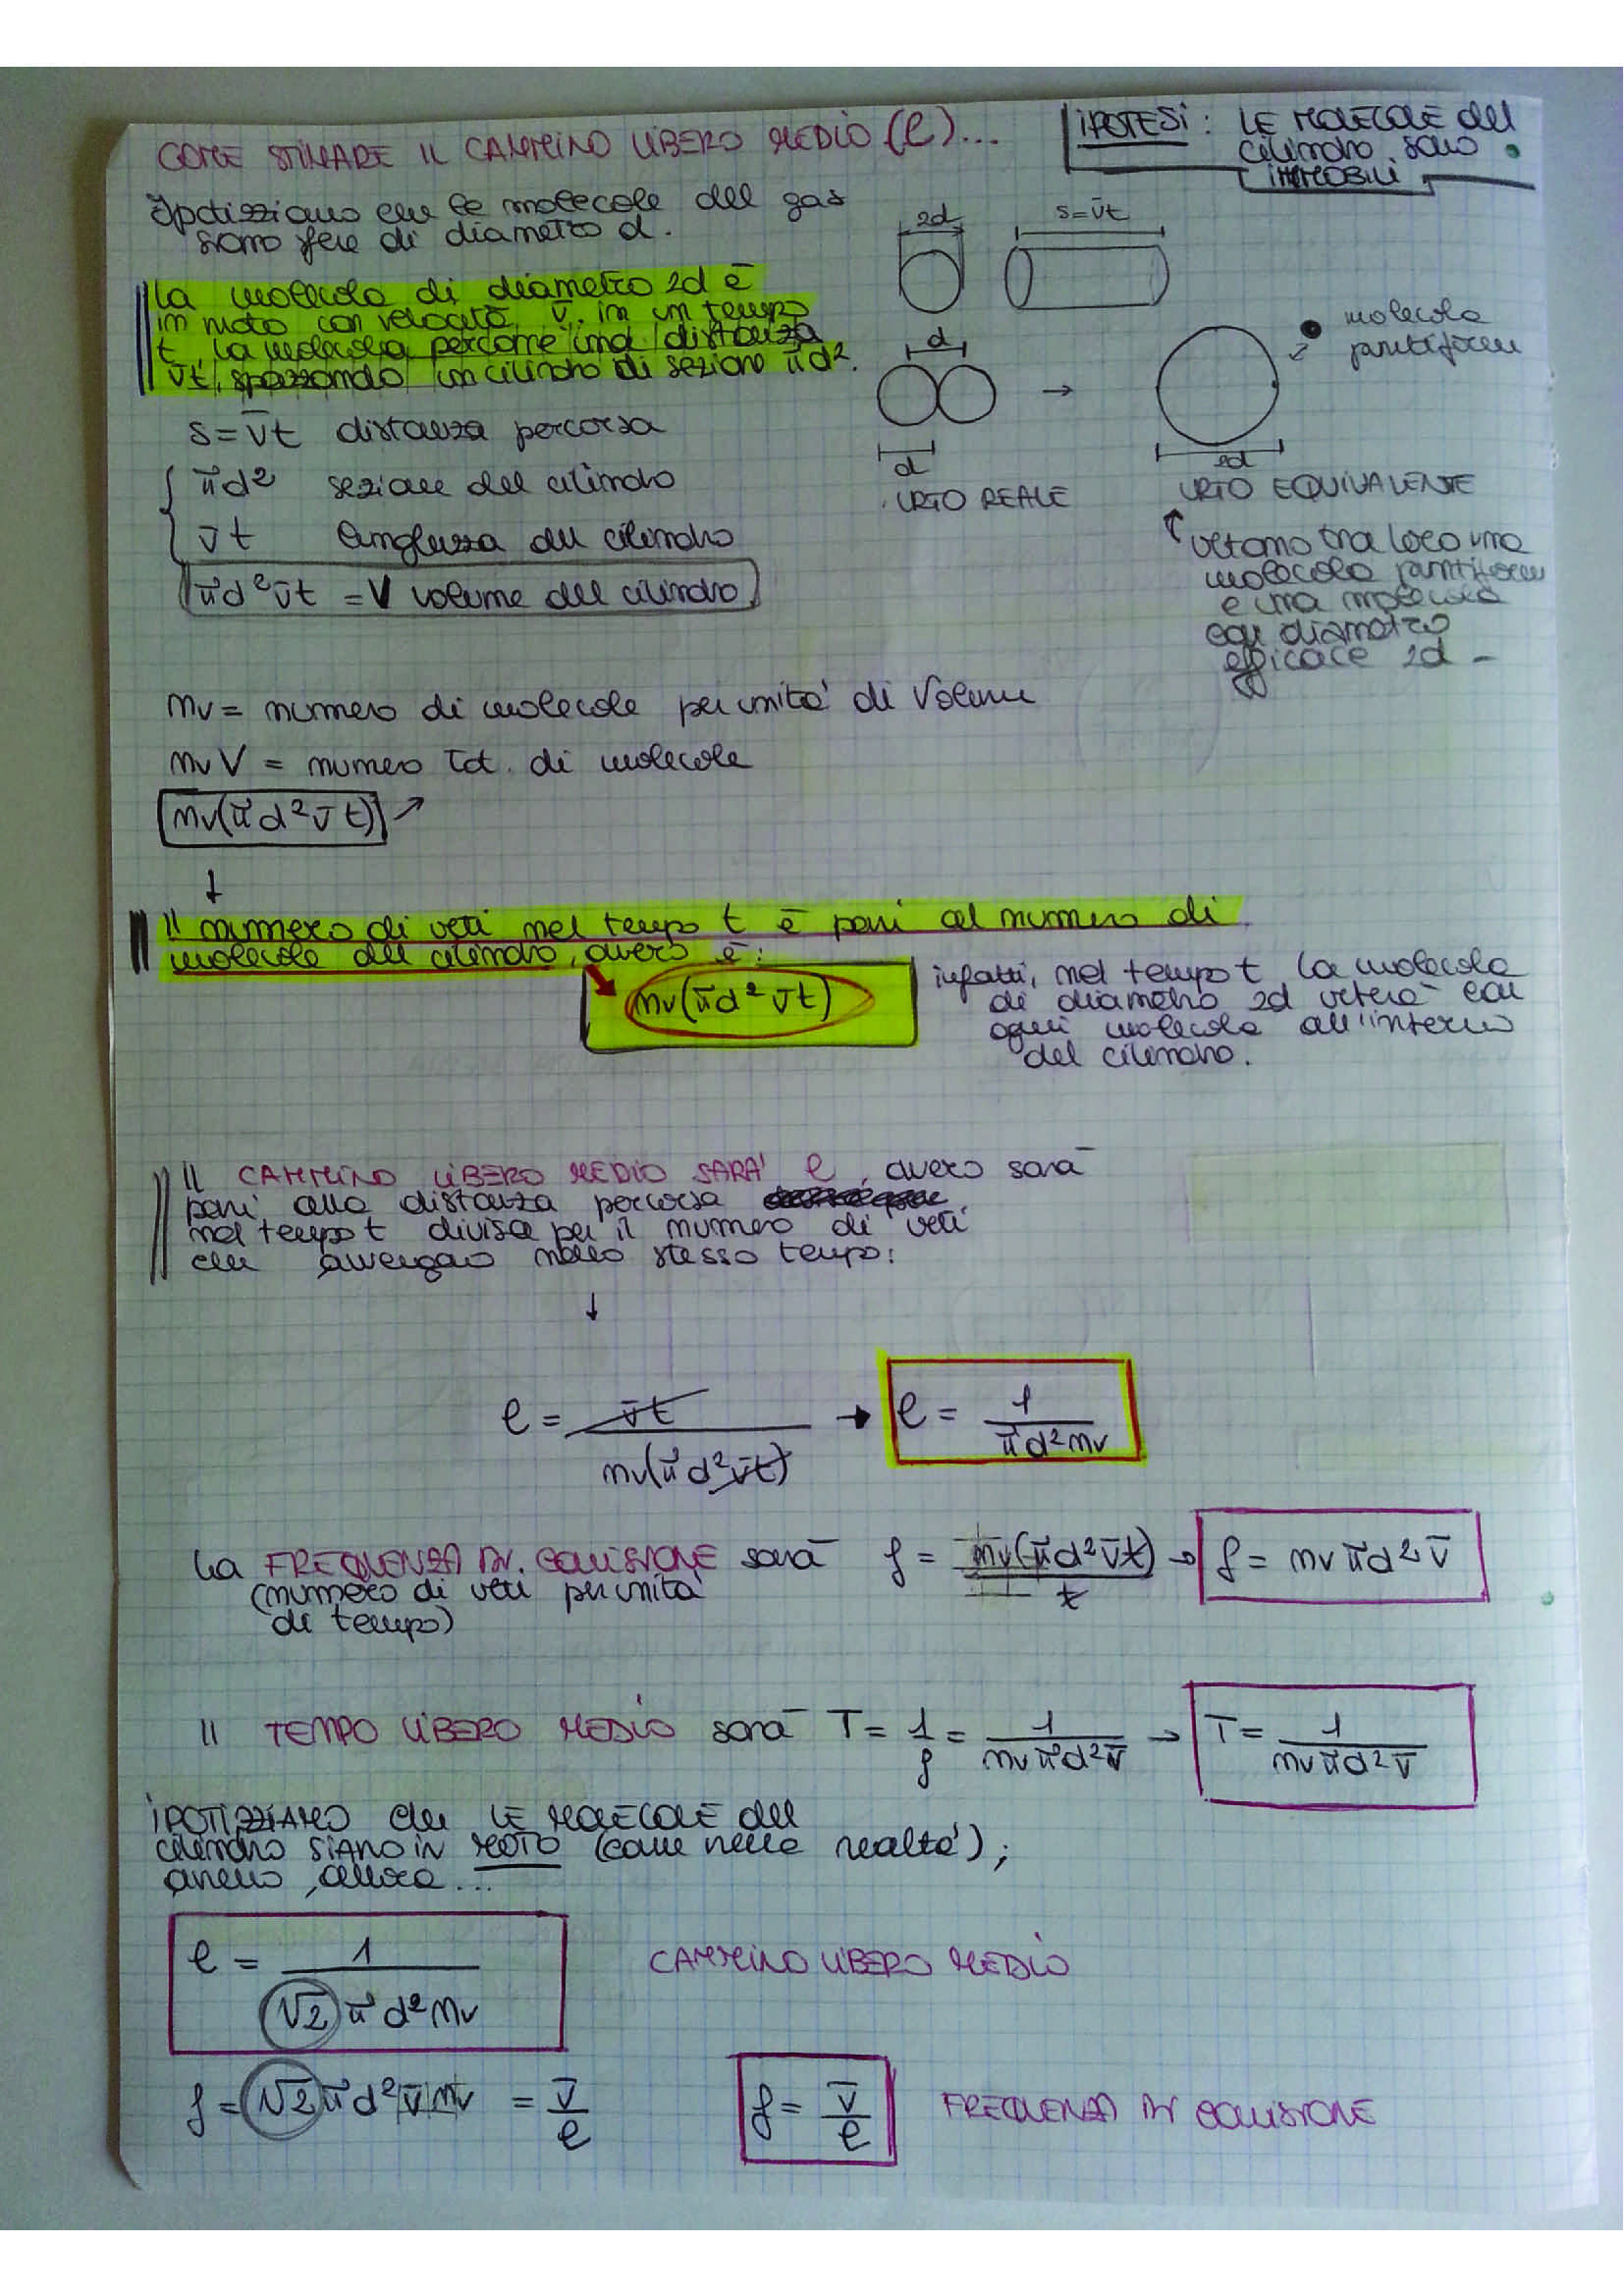 COME STIMARE IL CAMMINO LIBERO MEDIO (ℓ)...
IPOTESI: LE MOLECOLE del
cilindro sono
IMMOBILI
Ipotizziamo che le molecole del gas
siano sfere di diametro d.
2d
s=v̄t
La molecola di diametro 2d è
in moto con velocità v̄. in un tempo
t, la molecola percorre una distanza
v̄t, spazzando un cilindro di sezione πd².
d
molecola
puntiforme
s=v̄t distanza percorsa
πd² sezione del cilindro
v̄t lunghezza del cilindro
πd²v̄t = V volume del cilindro
d
2d
URTO REALE
URTO EQUIVALENTE
urtano tra loro una
molecola puntiforme
e una molecola
con diametro
efficace 2d -
nv = numero di molecole per unità di Volume
nv V = numero tot. di molecole
nv(πd²v̄t)
Il numero di urti nel tempo t è pari al numero di
molecole del cilindro, ovvero è:
nv(πd²v̄t)
infatti, nel tempo t la molecola
di diametro 2d urterà con
ogni molecola all'interno
del cilindro.
Il CAMMINO LIBERO MEDIO SARA' ℓ, ovvero sarà
pari alla distanza percorsa
nel tempo t divisa per il numero di urti
che avvengono nello stesso tempo:
ℓ = v̄t / nv(πd²v̄t) → ℓ = 1 / πd²nv
La FREQUENZA DI COLLISIONE sarà f = nv(πd²v̄t) / t → f = nvπd²v̄
(numero di urti per unità
di tempo)
Il TEMPO LIBERO MEDIO sarà T = 1/f = 1 / nvπd²v̄ → T = 1 / nvπd²v̄
IPOTIZZIAMO che LE MOLECOLE del
cilindro SIANO IN MOTO (come nella realtà);
avremo, allora...
ℓ = 1 / √2πd²nv CAMMINO LIBERO MEDIO
f = √2πd²v̄nv = v̄/ℓ f = v̄/ℓ FREQUENZA DI COLLISIONE